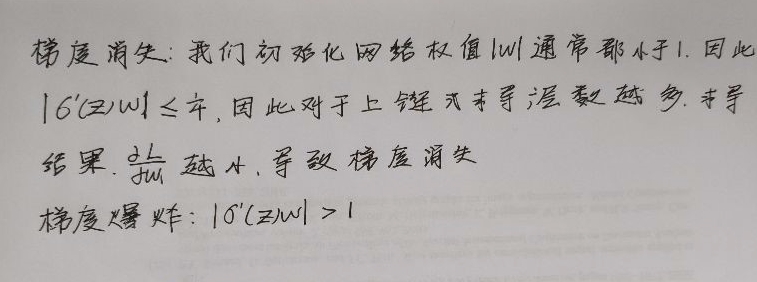 梯度消失:我们初始化网络权值|w|通常都小于1.因此
|σ'(z)w|≤¼,因此对于上链式求导,层数越多.求导
结果.∂L/∂w₁越小.导致梯度消失
梯度爆炸:|σ'(z)w|>1